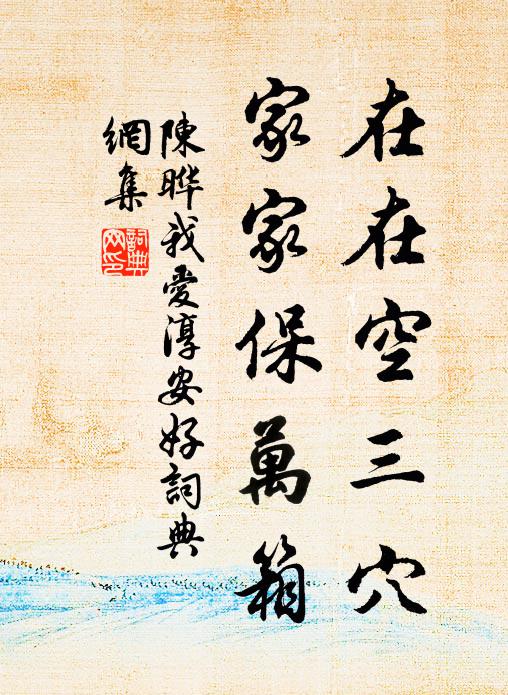 在在空三穴
家家保萬箱
陳晔我愛淳安好詞典
網集
詞典
网印